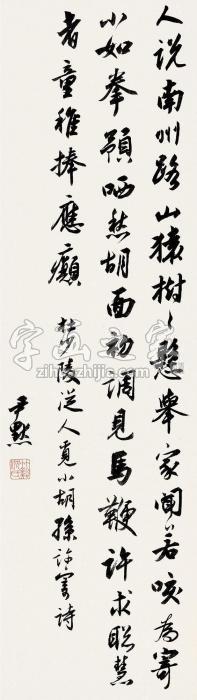 人说南州路山猿树〻悬举家闻若咳为寄
小如拳预哂愁胡面初调见马鞭许求聪慧
者童稚捧应癫 杜少陵从人觅小胡孙许寄诗
尹默
字画之家
zihuazhijia.com